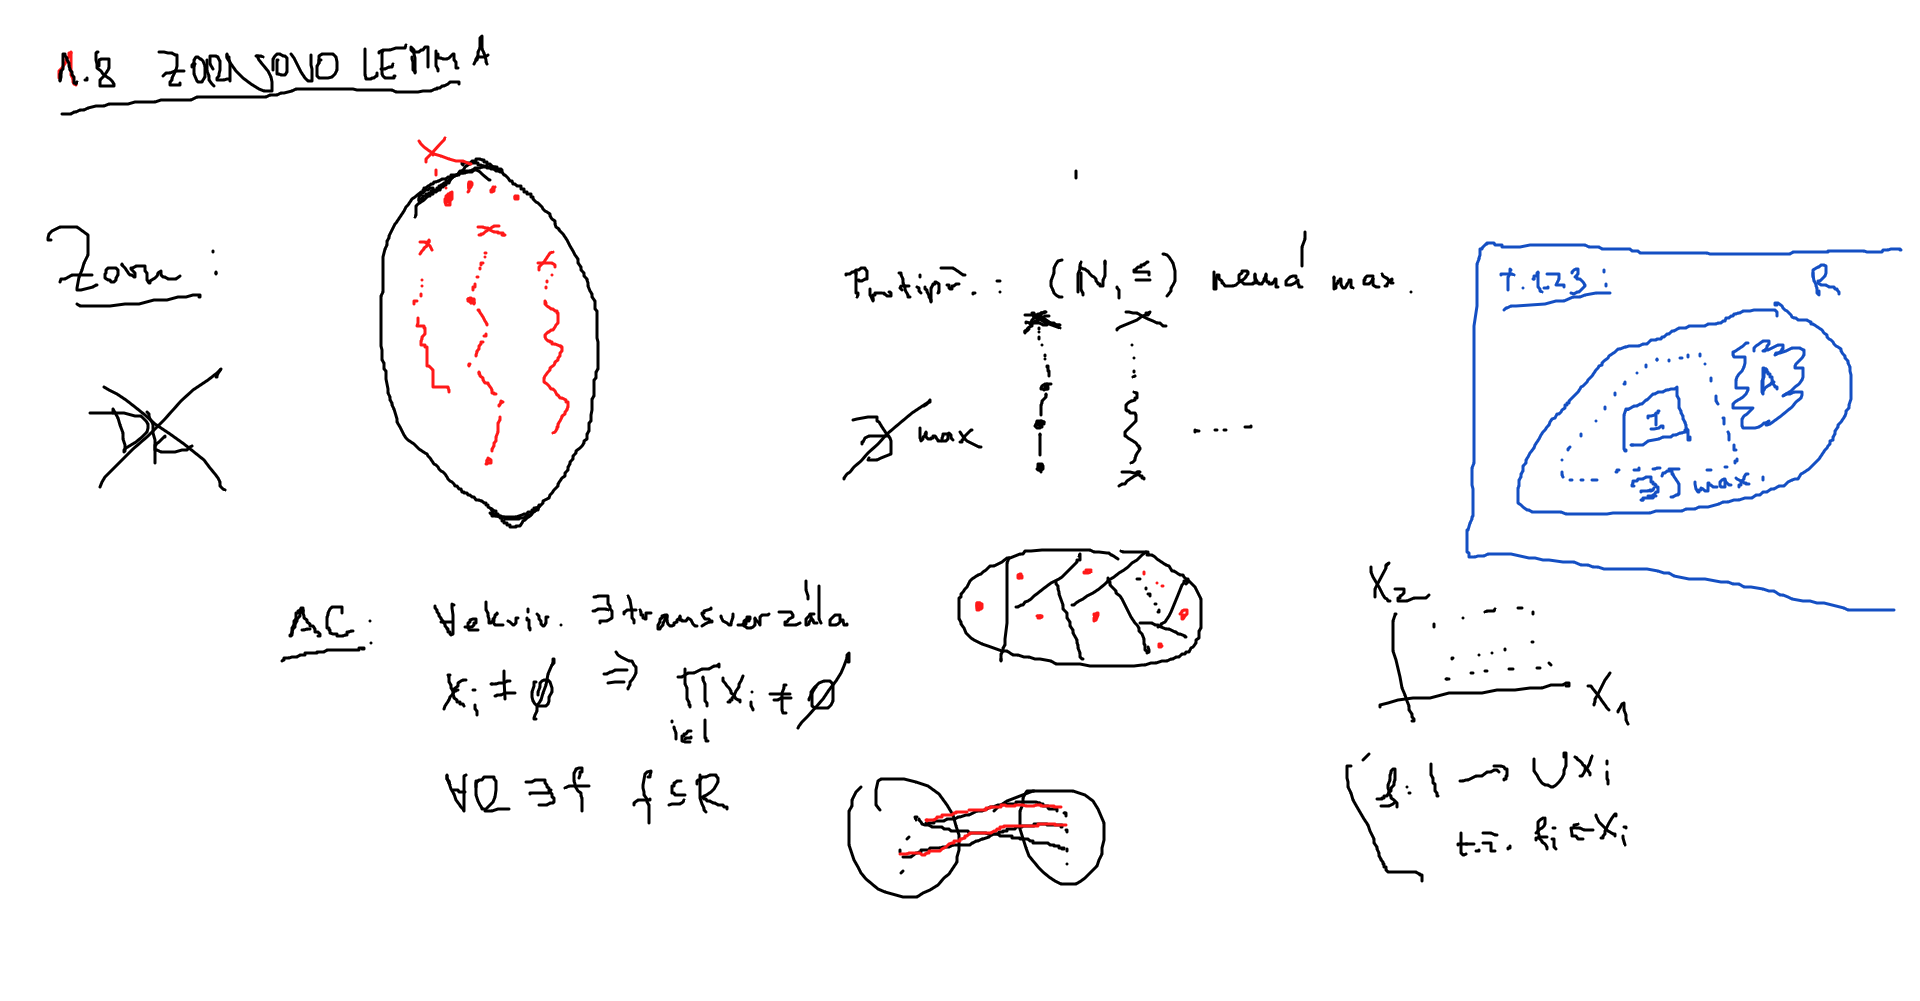 1.8 ZORNOVO LEMMA
Zorn :
DK
Protipř. : (N, ≤) nemá max.
∄ max
T.1.23 :
R
I
A
∃J max.
AC: ∀ekviv. ∃transverzála
Xᵢ ≠ ∅ ⇒ ∏ Xᵢ ≠ ∅
i∈I
∀R ∃f f ⊆ R
X₂
X₁
f: I → ∪Xᵢ
t.ž. fᵢ ∈ Xᵢ